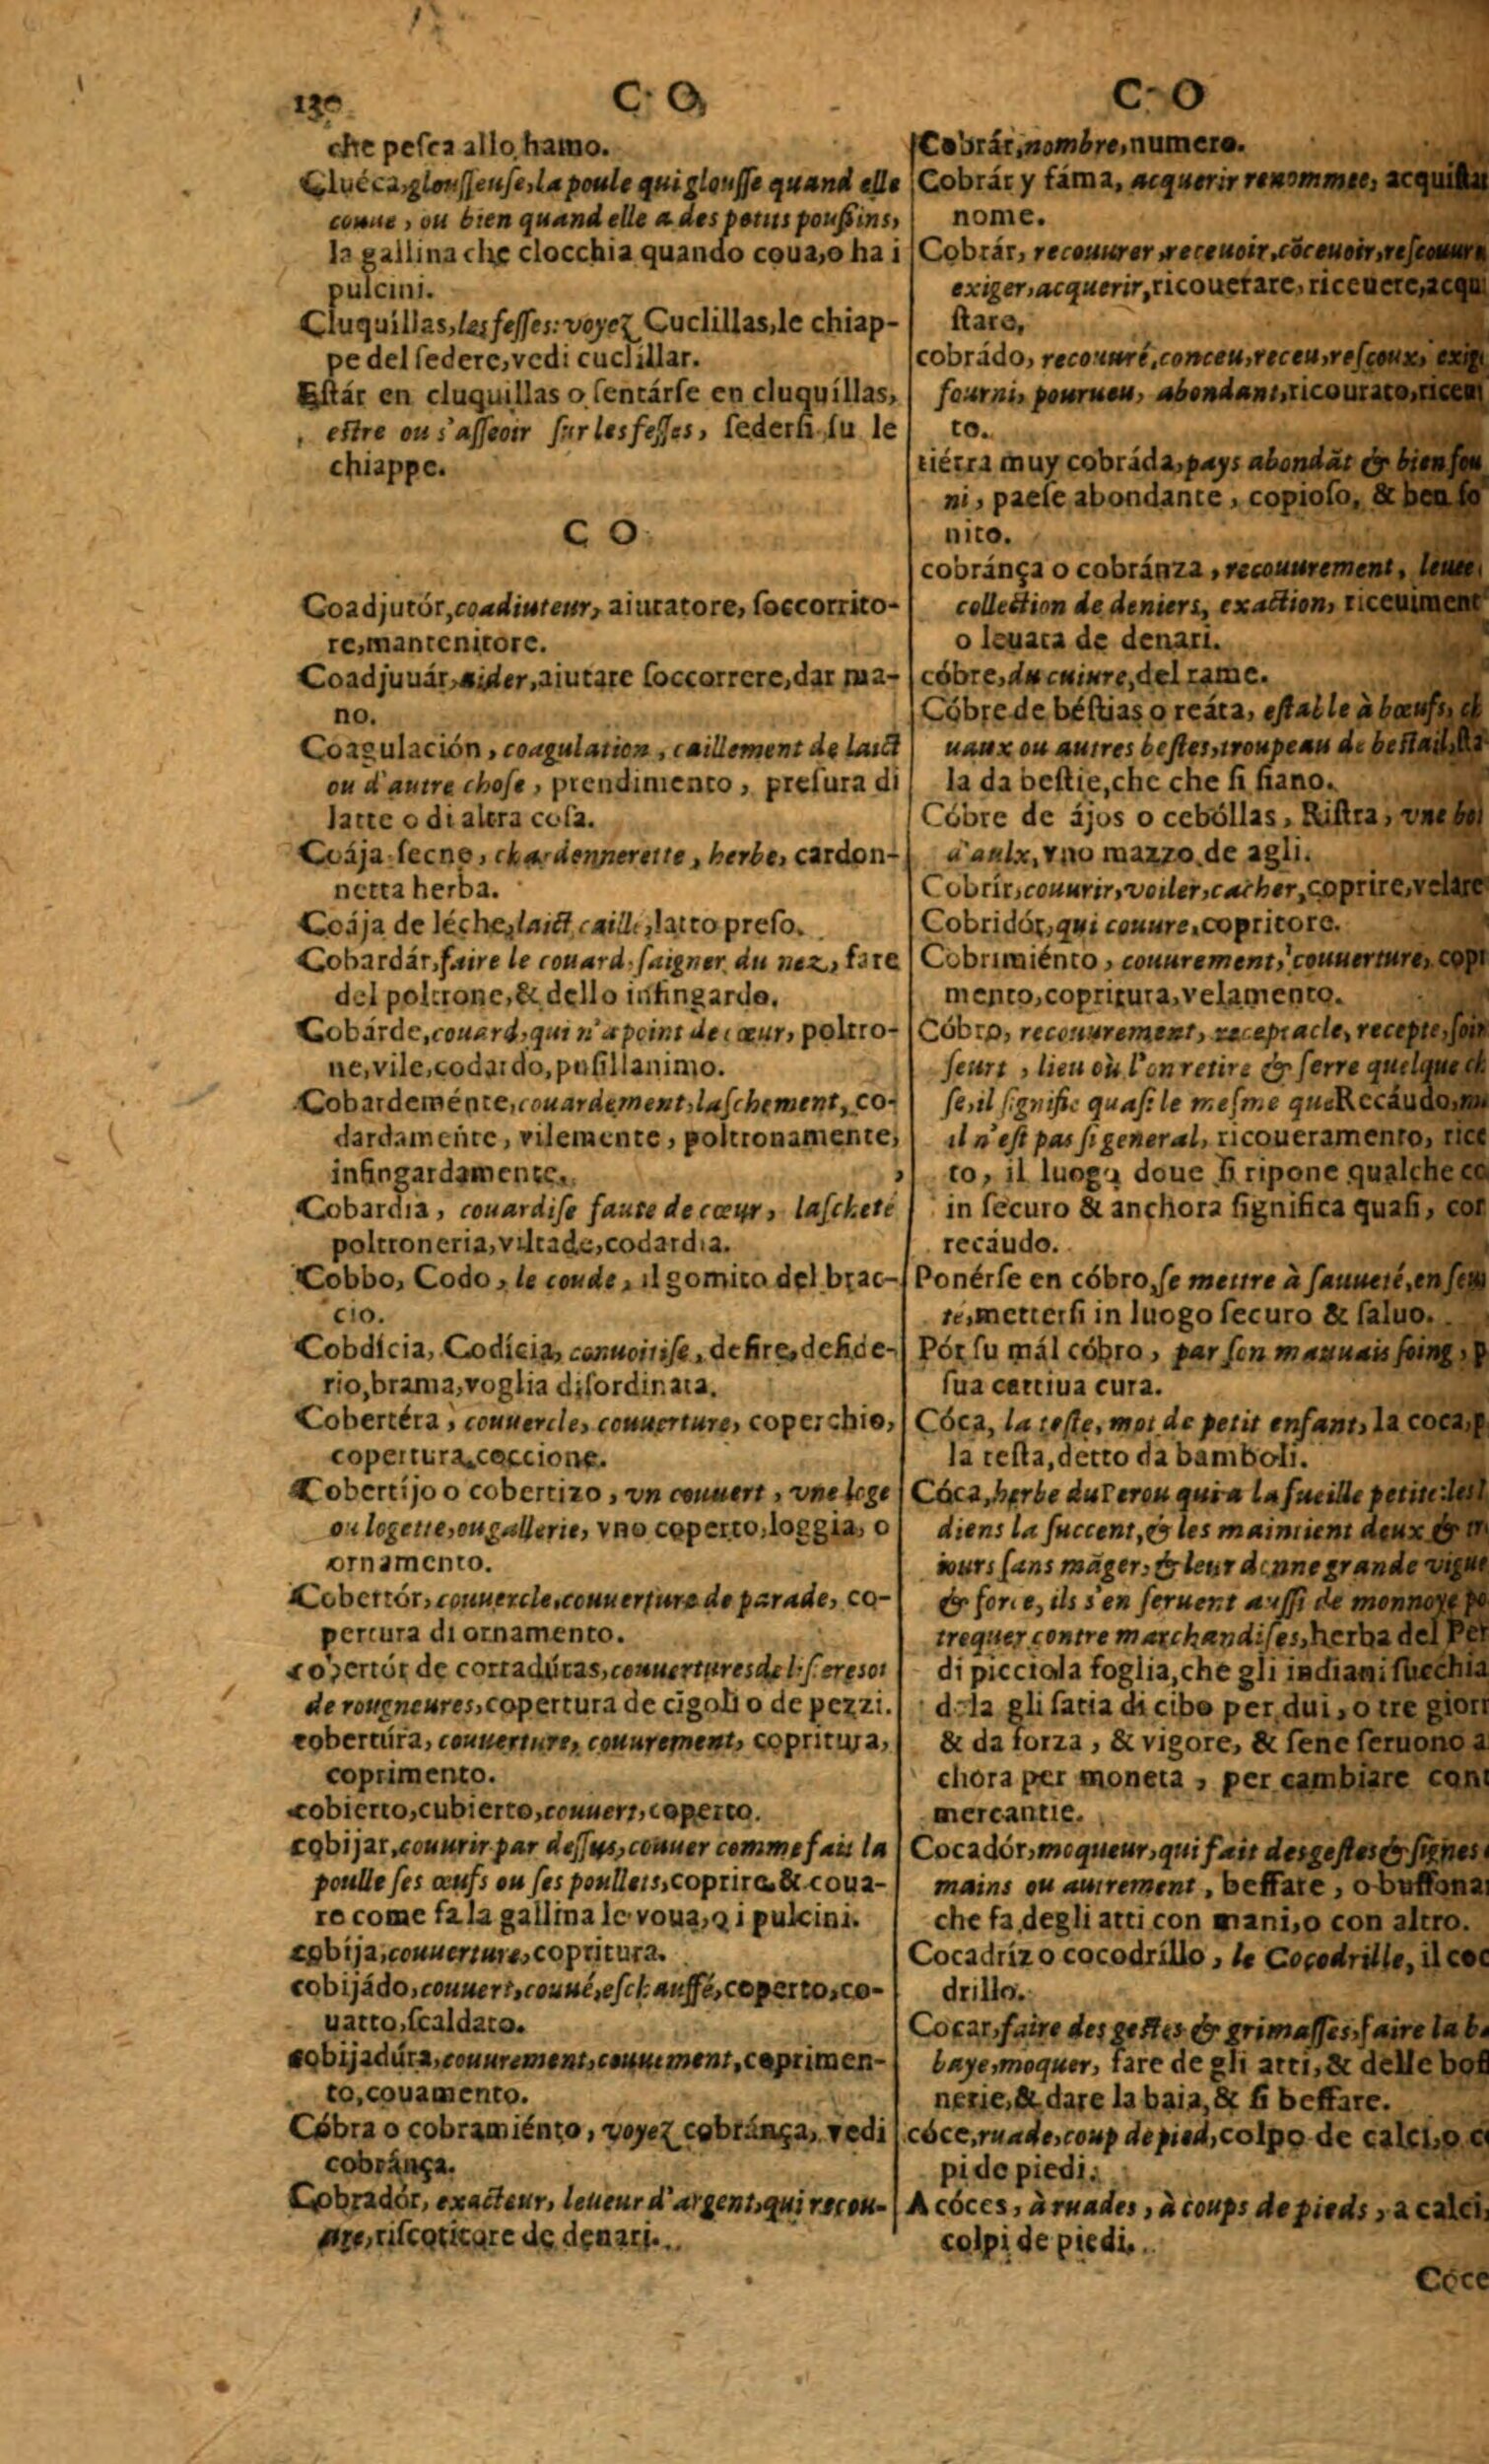 130 C O C O
che pesca allo hamo.
Cluéca, glousseuse, la poule qui glousse quand elle
couue, ou bien quand elle a des petits poußins,
la gallina che clocchia quando coua, o ha i
pulcini.
Cluquíllas, les fesses: voyez Cuclillas, le chiap-
pe del sedere, vedi cuclillar.
Estár en cluquillas o sentárse en cluquíllas,
estre ou s'asseoir sur les fesses, sedersi su le
chiappe.
C O
Coadjutór, coadiuteur, aiutatore, soccorrito-
re, mantenitore.
Coadjuuár, aider, aiutare soccorrere, dar ma-
no.
Coagulación, coagulation, caillement de laict
ou d'autre chose, prendimento, presura di
latte o di altra cosa.
Coája secne, chardennerette, herbe, cardon-
netta herba.
Coája de léche, laict caillé, latto preso.
Cobardár, faire le couard, saigner du nez, fare
del poltrone, & dello infingardo.
Cobárde, couard, qui n'a point de cœur, poltro-
ne, vile, codardo, pusillanimo.
Cobardeménte, couardement, laschement, co-
dardamente, vilemente, poltronamente,
infingardamente.
Cobardia, couardise faute de cœur, lascheté
poltroneria, viltade, codardia.
Cobbo, Codo, le coude, il gomito del brac-
cio.
Cobdícia, Codícia, conuoitise, desire, deside-
rio, brama, voglia disordinata.
Cobertéra, couuercle, couuerture, coperchio,
copertura, coccione.
Cobertíjo o cobertizo, vn couuert, vne loge
ou logette, ou gallerie, vno coperto, loggia, o
ornamento.
Cobertór, couuercle, couuerture de parade, co-
pertura di ornamento.
cobertór de cortadúras, couuertures de
de rougneures, copertura de cigoli o de pezzi.
cobertúra, couuerture, couurement, copritura,
coprimento.
cobierto, cubierto, couuert, coperto.
cobijar, couurir par dessus, couuer comme fait la
poulle ses œufs ou ses poullets, coprire & coua-
re come fa la gallina le voua, o i pulcini.
cobija, couuerture, copritura.
cobijádo, couuert, couué, eschauffé, coperto, co-
uatto, scaldato.
cobijadúra, couurement, couuement, coprimen-
to, covamento.
Cóbra o cobramiénto, voyez cobránça, vedi
cobránça.
Cobradór, exacteur, leueur d'argent, qui recou-
ure, riscotitore de denari.
Cobrár, nombre, numero.
Cobrár y fáma, acquerir renommee, acquistar
nome.
Cobrár, recouurer, receuoir, cõceuoir, rescouure
exiger, acquerir, ricouerare, riceuere, acqui
stare,
cobrádo, recouuré, conceu, receu, rescoux, exigé
fourni, pourueu, abondant, ricourato, riceui
to.
tiérra muy cobráda, pays abondãt & bien fou
ni, paese abondante, copioso, & ben fo
nito.
cobránça o cobránza, recouurement, leuee,
collection de deniers, exaction, riceuiment
o leuata de denari.
cóbre, du cuiure, del rame.
Cóbre de béstias o reáta, estable à bœufs, ch
uaux ou autres bestes, troupeau de bestail, sta
la da bestie, che che si siano.
Cóbre de ájos o cebóllas, Ristra, vne bot
d'aulx, vno mazzo de agli.
Cobrír, couurir, voiler, cacher, coprire, velare
Cobridór, qui couure, copritore.
Cobrimiénto, couurement, couuerture, copr
mento, copritura, velamento.
Cóbro, recouurement, receptacle, recepte, soin
seurt, lieu où l'on retire & serre quelque ch
se, il signifie quasi le mesme que Recáudo, m
il n'est pas si general, ricoueramento, rice
to, il luogo doue si ripone qualche co
in securo & anchora significa quasi, com
recáudo.
Ponérse en cóbro, se mettre à sauueté, en seu
té, mettersi in luogo securo & saluo.
Pór su mál cóbro, par son mauuais soing, p
sua cattiua cura.
Cóca, la teste, mot de petit enfant, la coca, p
la testa, detto da bamboli.
Cóca, herbe du Perou qui a la fueille petite: les I
diens la succent, & les maintient deux & tr
iours sans mãger, & leur donne grande vigue
& force, ils s'en seruent aussi de monnoye po
trequer contre marchandises, herba del Per
di picciola foglia, che gli indiani succhia
d la gli satia di cibo per dui, o tre giorn
& da forza, & vigore, & sene seruono a
chora per moneta, per cambiare cont
mercantie.
Cocadór, mocqueur, qui fait des gestes & signes
mains ou autrement, beffare, o buffona
che fa degli atti con mani, o con altro.
Cocadríz o cocodríllo, le Cocodrille, il coc
drillo.
Cocar, faire des gestes & grimasses, faire la b
baye, moquer, fare de gli atti, & delle boff
nerie, & dare la baia, & si beffare.
cóce, ruade, coup de pied, colpo de calci, o c
pi de piedi.
A cóces, à ruades, à coups de pieds, a calci,
colpi de piedi.
Coce